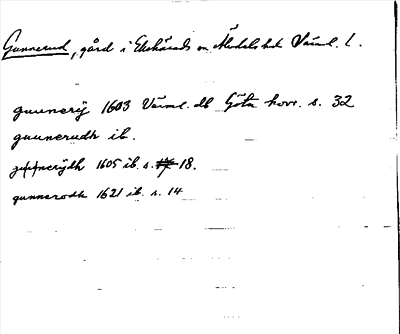 Gunnerud, gård i Ekshärads sn. Älvdals hd Värml. l.
gunnerij 1603 Värml. db Göta hovr. s. 32
gunnerudh ib.
gunnerijdh 1605 ib. s. 18.
gunnerodh 1621 ib. s. 14